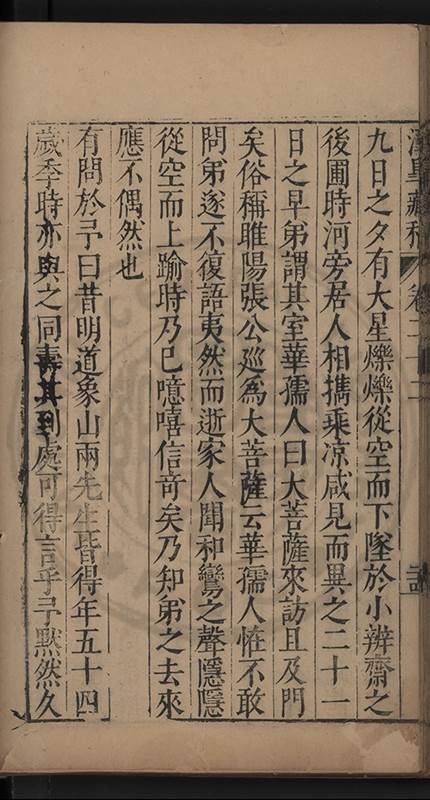 藏稿 卷二十二
九日之夕有大星爍爍從空而下墜於小辨齋之
後圃時河旁居人相攜乘凉咸見而異之二十一
日之早弟謂其室華孺人曰大菩薩來訪且及門
矣俗稱睢陽張公巡為大菩薩云華孺人恠不敢
問弟遂不復語夷然而逝家人聞和鸞之聲隱隱
從空而上踰時乃已噫嘻信竒矣乃知弟之去來
應不偶然也
有問於予曰昔明道象山兩先生皆得年五十四
歲季時亦與之同壽其到處可得言乎予默然久